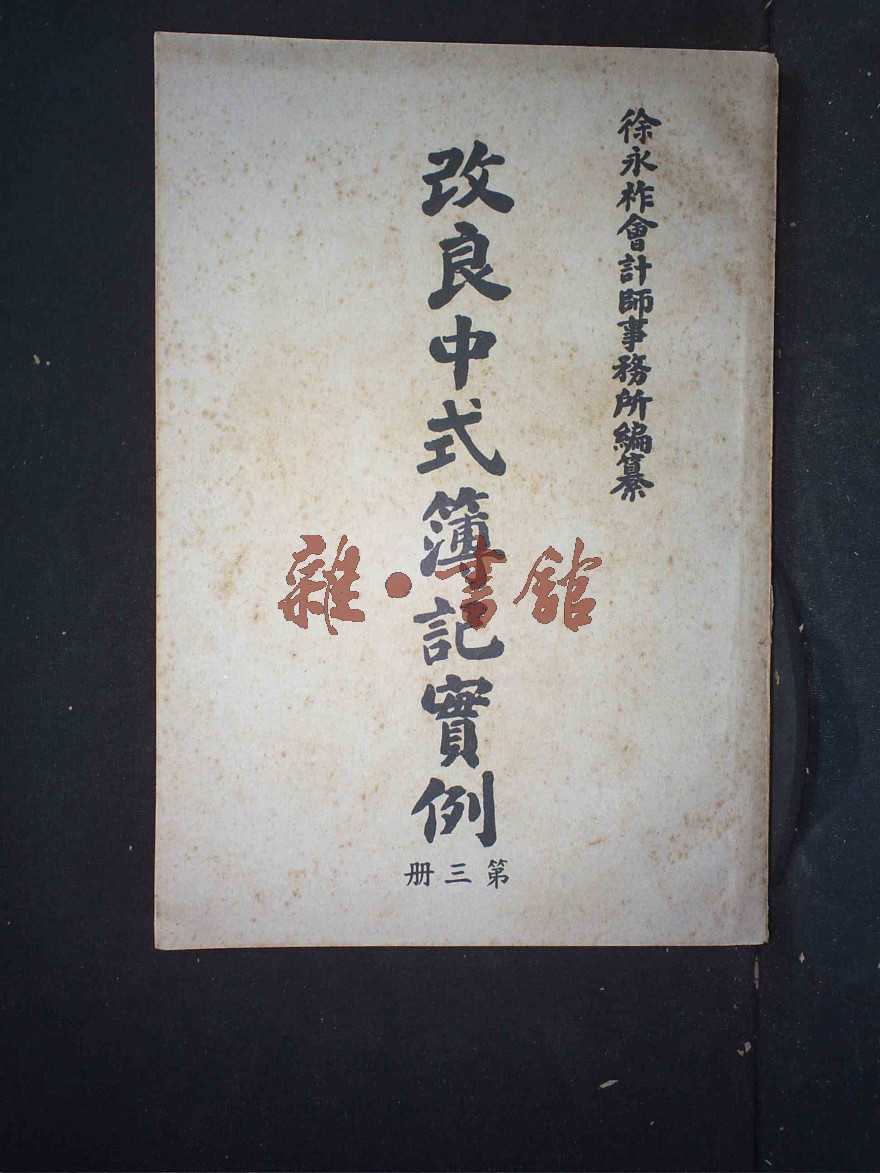 徐永祚會計師事務所編纂
改良中式簿記實例
第三冊
雜•書館